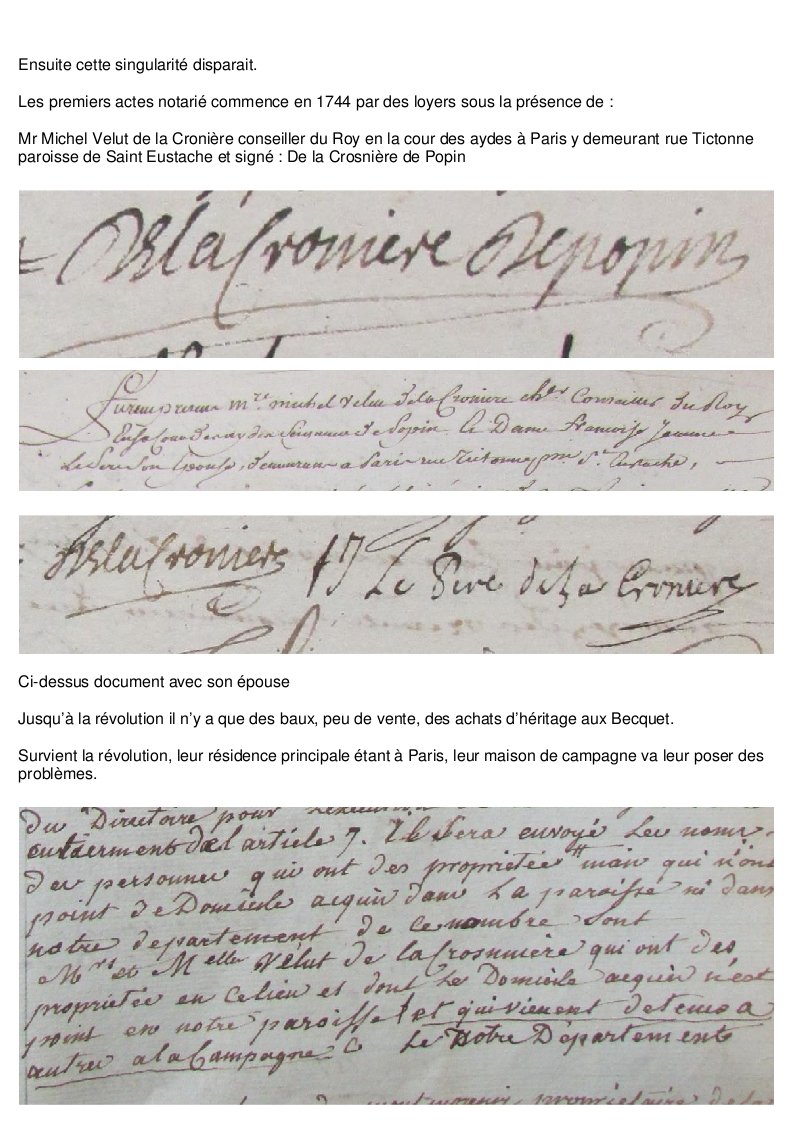 Ensuite cette singularité disparait.
Les premiers actes notarié commence en 1744 par des loyers sous la présence de :
Mr Michel Velut de la Cronière conseiller du Roy en la cour des aydes à Paris y demeurant rue Tictonne
paroisse de Saint Eustache et signé : De la Crosnière de Popin
Dela Croniere Depopin
Furent presens mre michel Velut dela Croniere cher Conseiller du Roy
En sa Cour des aydes de Popin Et Dame francoise Jeanne
Le Pere Son Epouse, demeurans a Paris rue tictonne psse St Eustache,
Dela Croniere f J Le Pere de La Croniere
Ci-dessus document avec son épouse
Jusqu'à la révolution il n'y a que des baux, peu de vente, des achats d'héritage aux Becquet.
Survient la révolution, leur résidence principale étant à Paris, leur maison de campagne va leur poser des
problèmes.
du Directoire pour
de l article 7. Il Sera envoyé Les noms
des personnes qui ont des propriétée mais qui n'ont
point de Domicile acquis dans La paroisse ni dans
notre departement de ce nombre Sont
Mrs et Melles Vélut de la Crosnniere qui ont des
propriétée en Ce lieu et dont Le Domicile acquis n'est
point en notre paroisse et qui vienent de tems a
autres a la Campagne Le Notre Départements
propriétaire de la